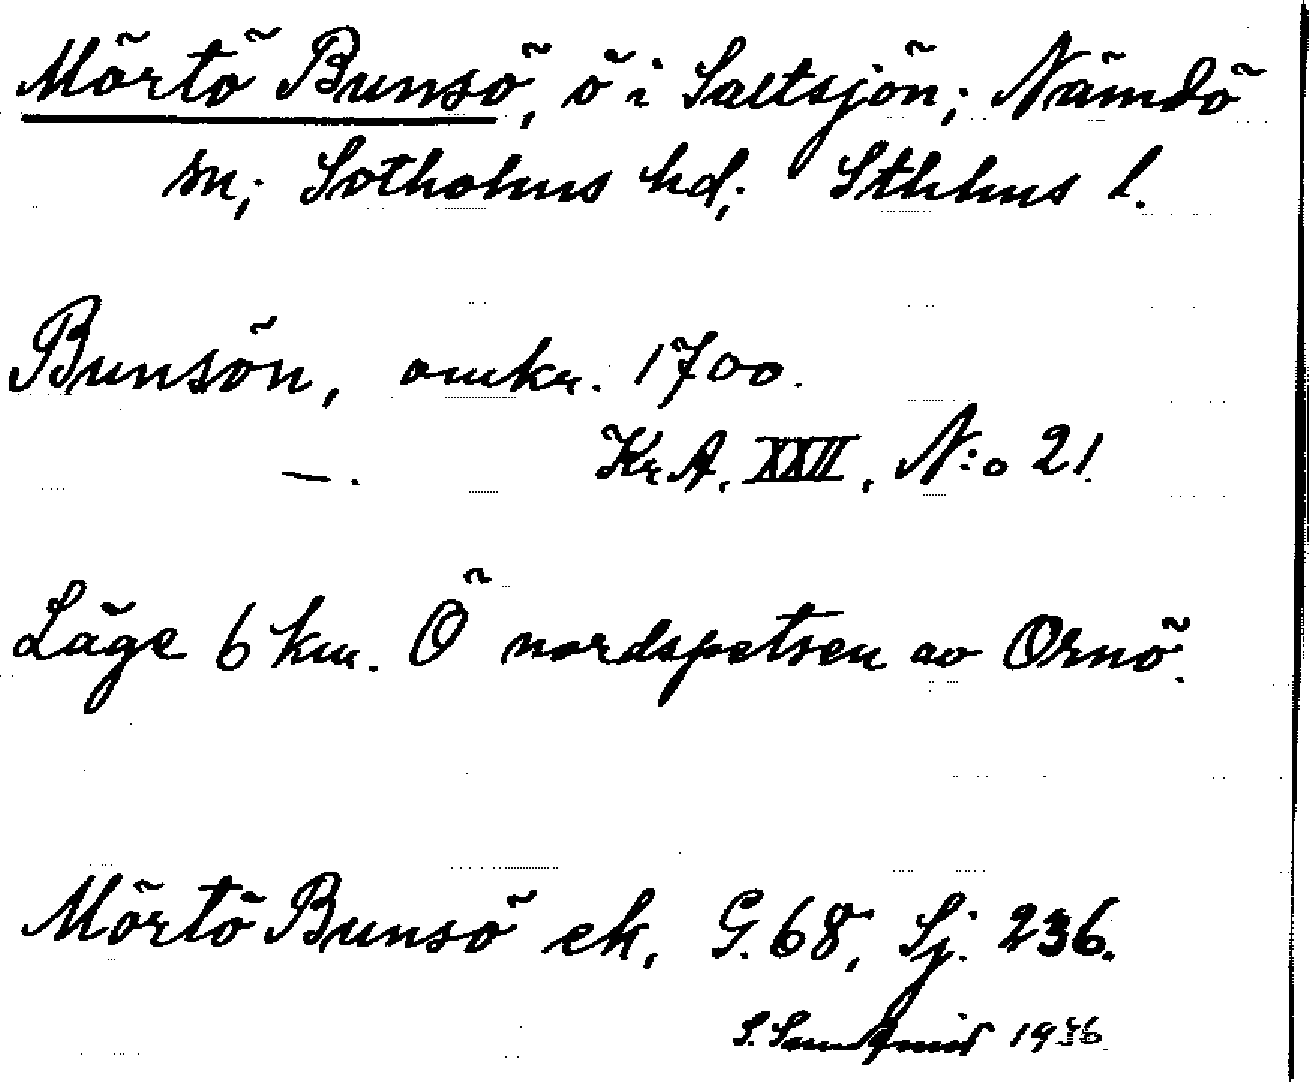 Mörtö Bunsö, ö i Saltsjön; Nämdö
sn; Sotholms hd; Sthlms l.
Bunsön, omkr. 1700.
—. Kr.A. XXII, N:o 21.
Läge 6 km. Ö nordspetsen av Ornö.
Mörtö Bunsö ek, G. 68, Sj. 236.
S. 1936